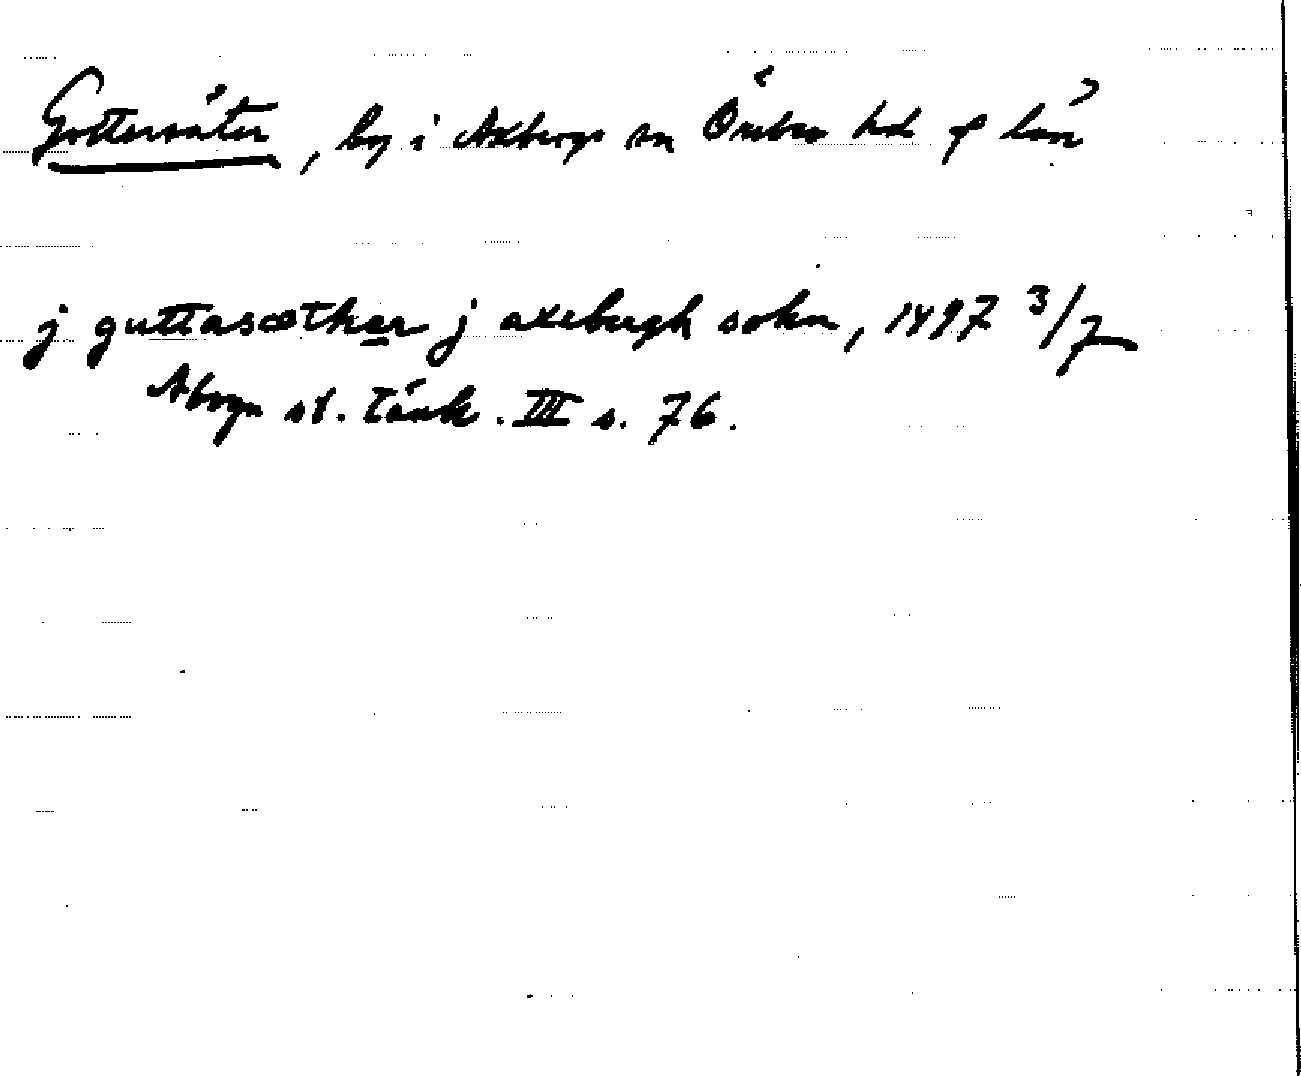 Gottersäter, by i Axbergs sn Örebro hd o län
j guttasæther j axebergh sokn, 1497 3/7
Åbogn st. tänk. III s. 76.